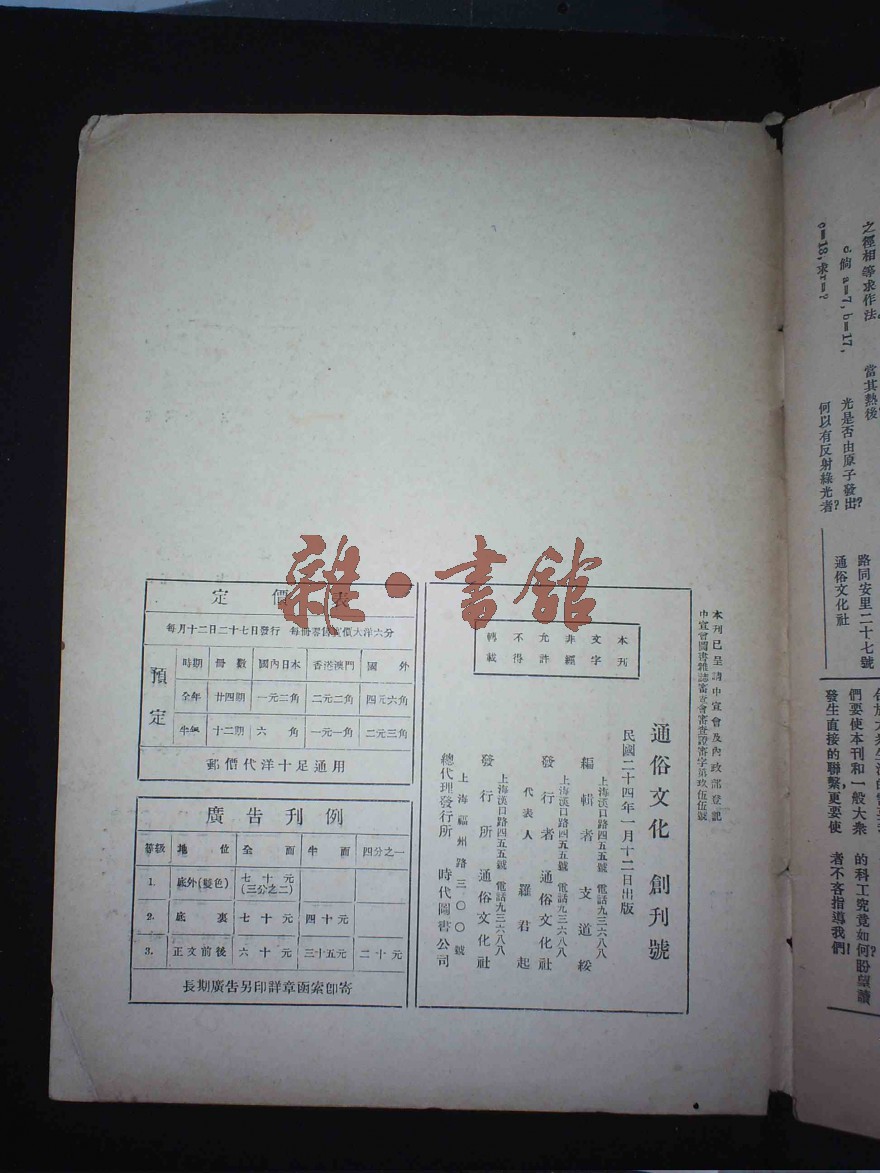 雜·書館
本刊已呈請中宣會及內政部登記
中宣會圖書雜誌審查會審查證審字第玖伍伍號
本刊
文字
非經
允許
不得
轉載
通俗文化 創刊號
民國二十四年一月十二日出版
上海漢口路四五五號 電話九三六八八
編輯者 支道綏
上海漢口路四五五號 電話九三六八八
發行者 通俗文化社
代表人 羅君起
上海漢口路四五五號 電話九三六八八
發行所 通俗文化社
上海福州路三〇〇號
總代理發行所 時代圖書公司
定價表
每月十二日二十七日發行 每冊零售實價大洋六分
預定
時期 冊數 國內日本 香港澳門 國外
全年 廿四期 一元二角 二元二角 四元六角
半年 十二期 六角 一元一角 二元三角
郵價代洋十足通用
廣告刊例
等級 地位 全面 半面 四分之一
1. 底外(雙色) 七十元(三公之二)
2. 底裏 七十元 四十元
3. 正文前後 六十元 三十五元 二十元
長期廣告另印詳章函索即寄
之徑相等求作法。
c. 倘 a=7, b=17,
c=18, 求r=?
當其熱後
光是否由原子發出?
何以有反射綠光者?
路同安里二十七號
通俗文化社
們要使本刊和一般大衆
發生直接的聯繫,更要使
的科工究竟如何盼望讀
者不客指導我們!